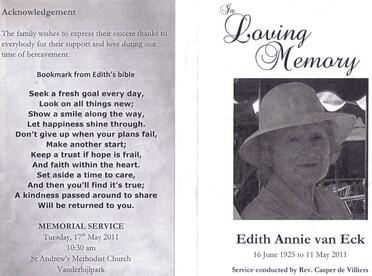 Acknowledgement
The family wishes to express their sincere thanks to
everybody for their support and love during our
time of bereavement.
Bookmark from Edith's bible
Seek a fresh goal every day,
Look on all things new;
Show a smile along the way,
Let happiness shine through.
Don't give up when your plans fail,
Make another start;
Keep a trust if hope is frail,
And faith within the heart.
Set aside a time to care,
And then you'll find it's true;
A kindness passed around to share
Will be returned to you.
MEMORIAL SERVICE
Tuesday, 17th May 2011
10:30 am
St Andrew's Methodist Church
Vanderbijlpark
In
Loving
Memory
Edith Annie van Eck
16 June 1925 to 11 May 2011
Service conducted by Rev. Casper de Villiers